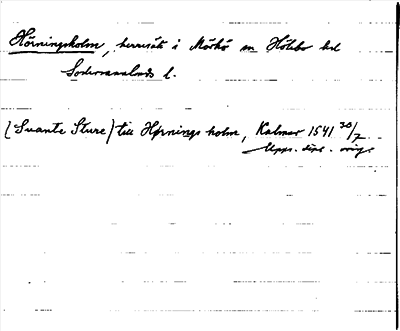 Hörningsholm, herresäte i Mörkö sn Hölebo hd
Södermanlands l.
(Svante Sture) till Hørnings holm, Kalmar 1541 30/7
Upps. dipl. orig.